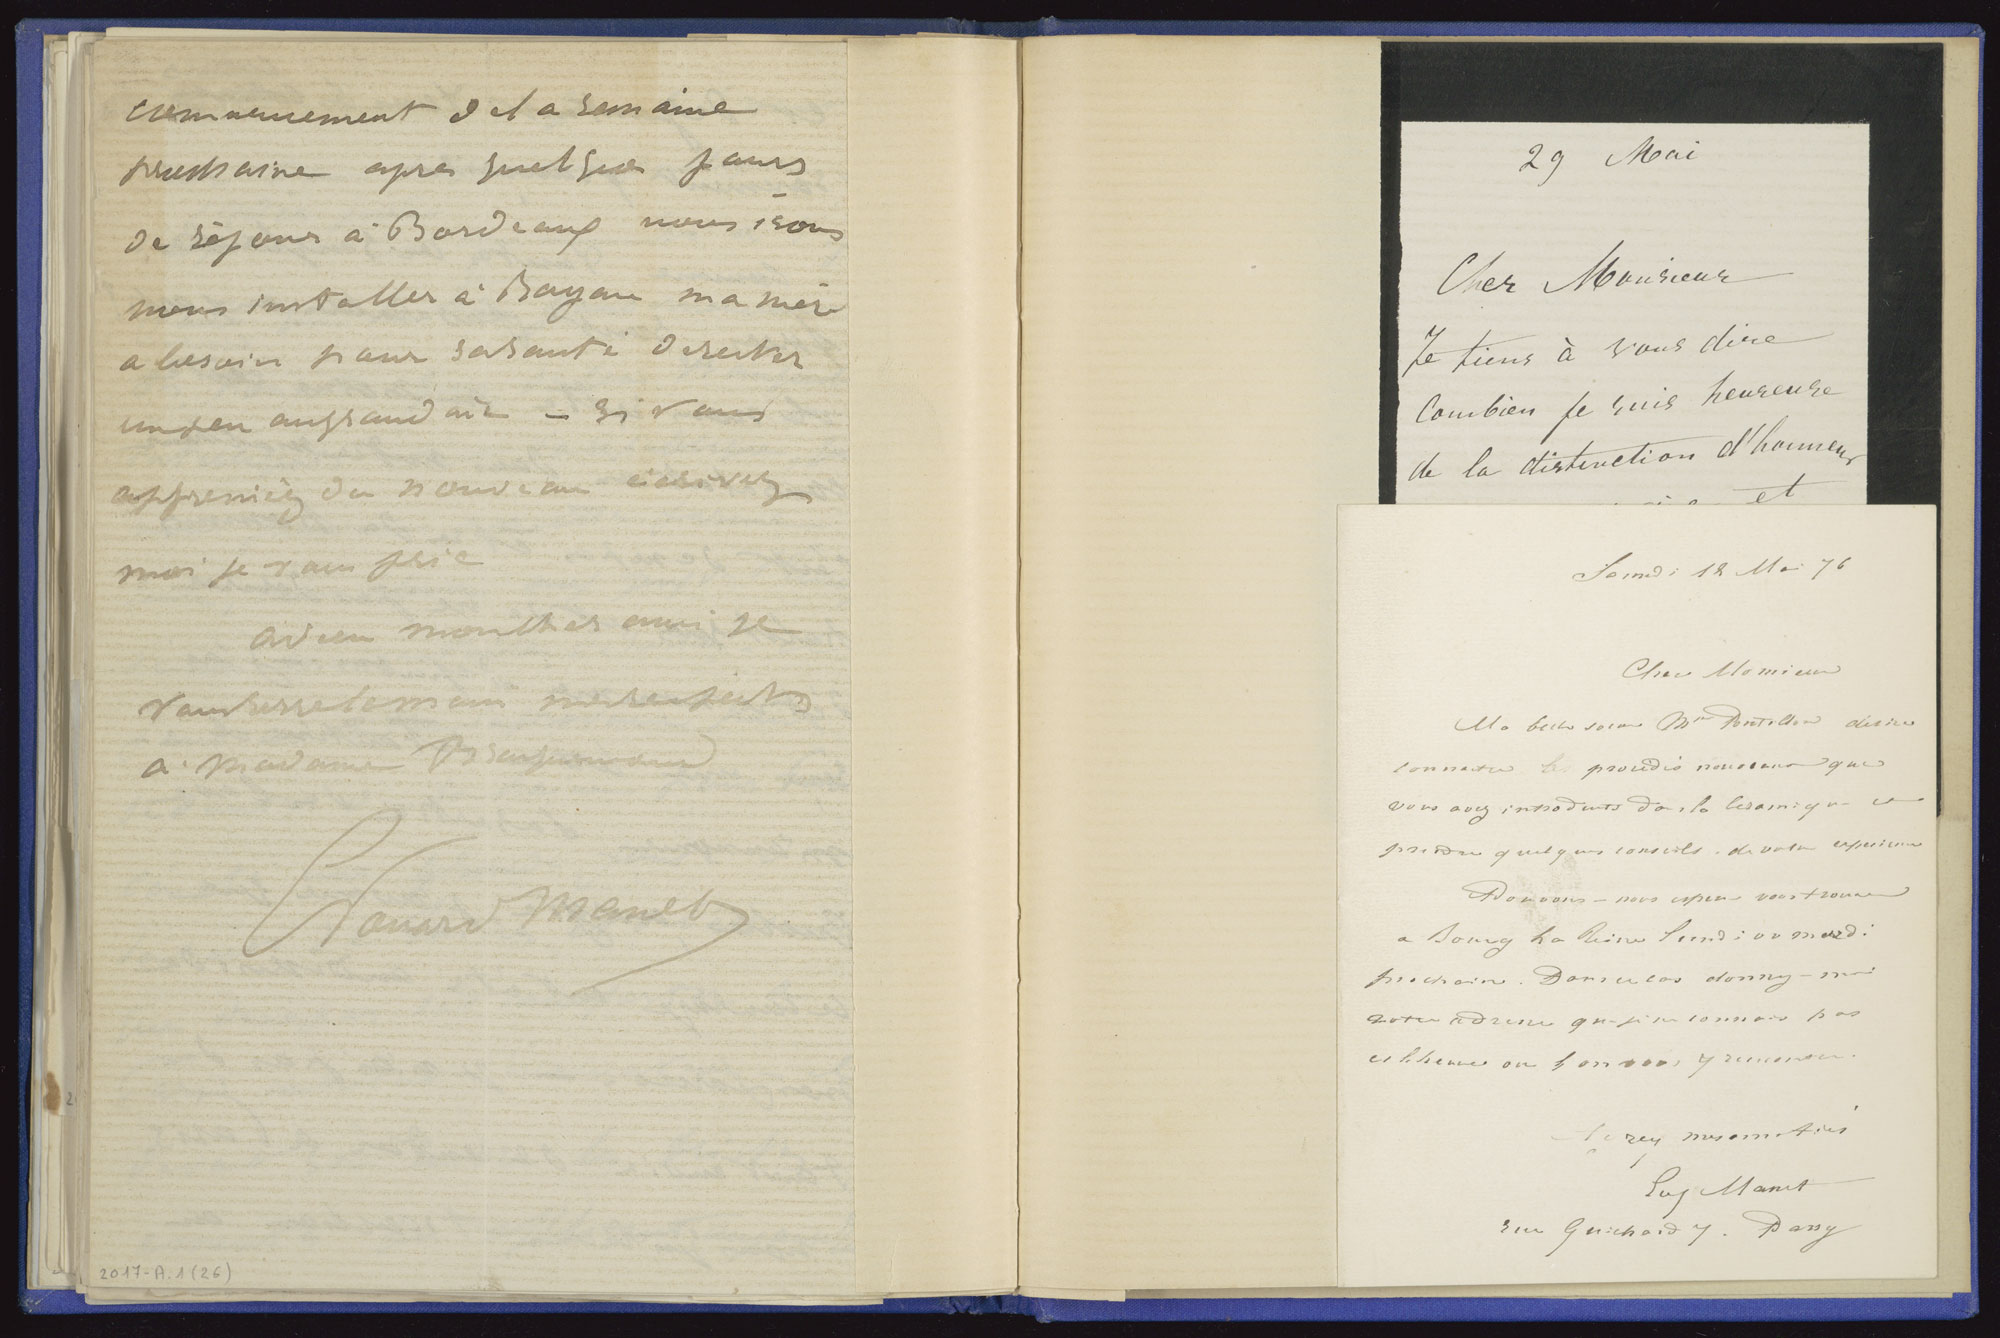 commencement de la semaine
prochaine apres quelques jours
de séjour à Bordeaux nous irons
nous installer à Royan ma mère
a besoin pour sa santé de rester
un peu au grand air – si vous
appreniez du nouveau écrivez
moi je vous prie
adieu mon cher ami je
vous serre la main mes respects
à Madame Bracquemond
Edouard Manet
2017-A.1 (26)
2
29 Mai
Cher Monsieur
Je tiens à vous dire
Combien je suis heureuse
de la distinction d'honneur
et
Samedi 18 Mai 76
Cher Monsieur
Ma belle soeur Mme Pontillon desire
connaitre les procedés nouveaux que
vous avez introduits dans la ceramique et
prendre quelques conseils de votre experience
Pouvons-nous esperer vous trouver
a Bourg la Reine Lundi ou mardi
prochain. Dans ce cas donnez-moi
votre adresse que je ne connais pas
et l'heure ou l'on vous y rencontre.
mes amitiés
Eug Manet
rue Guichard 7. Passy